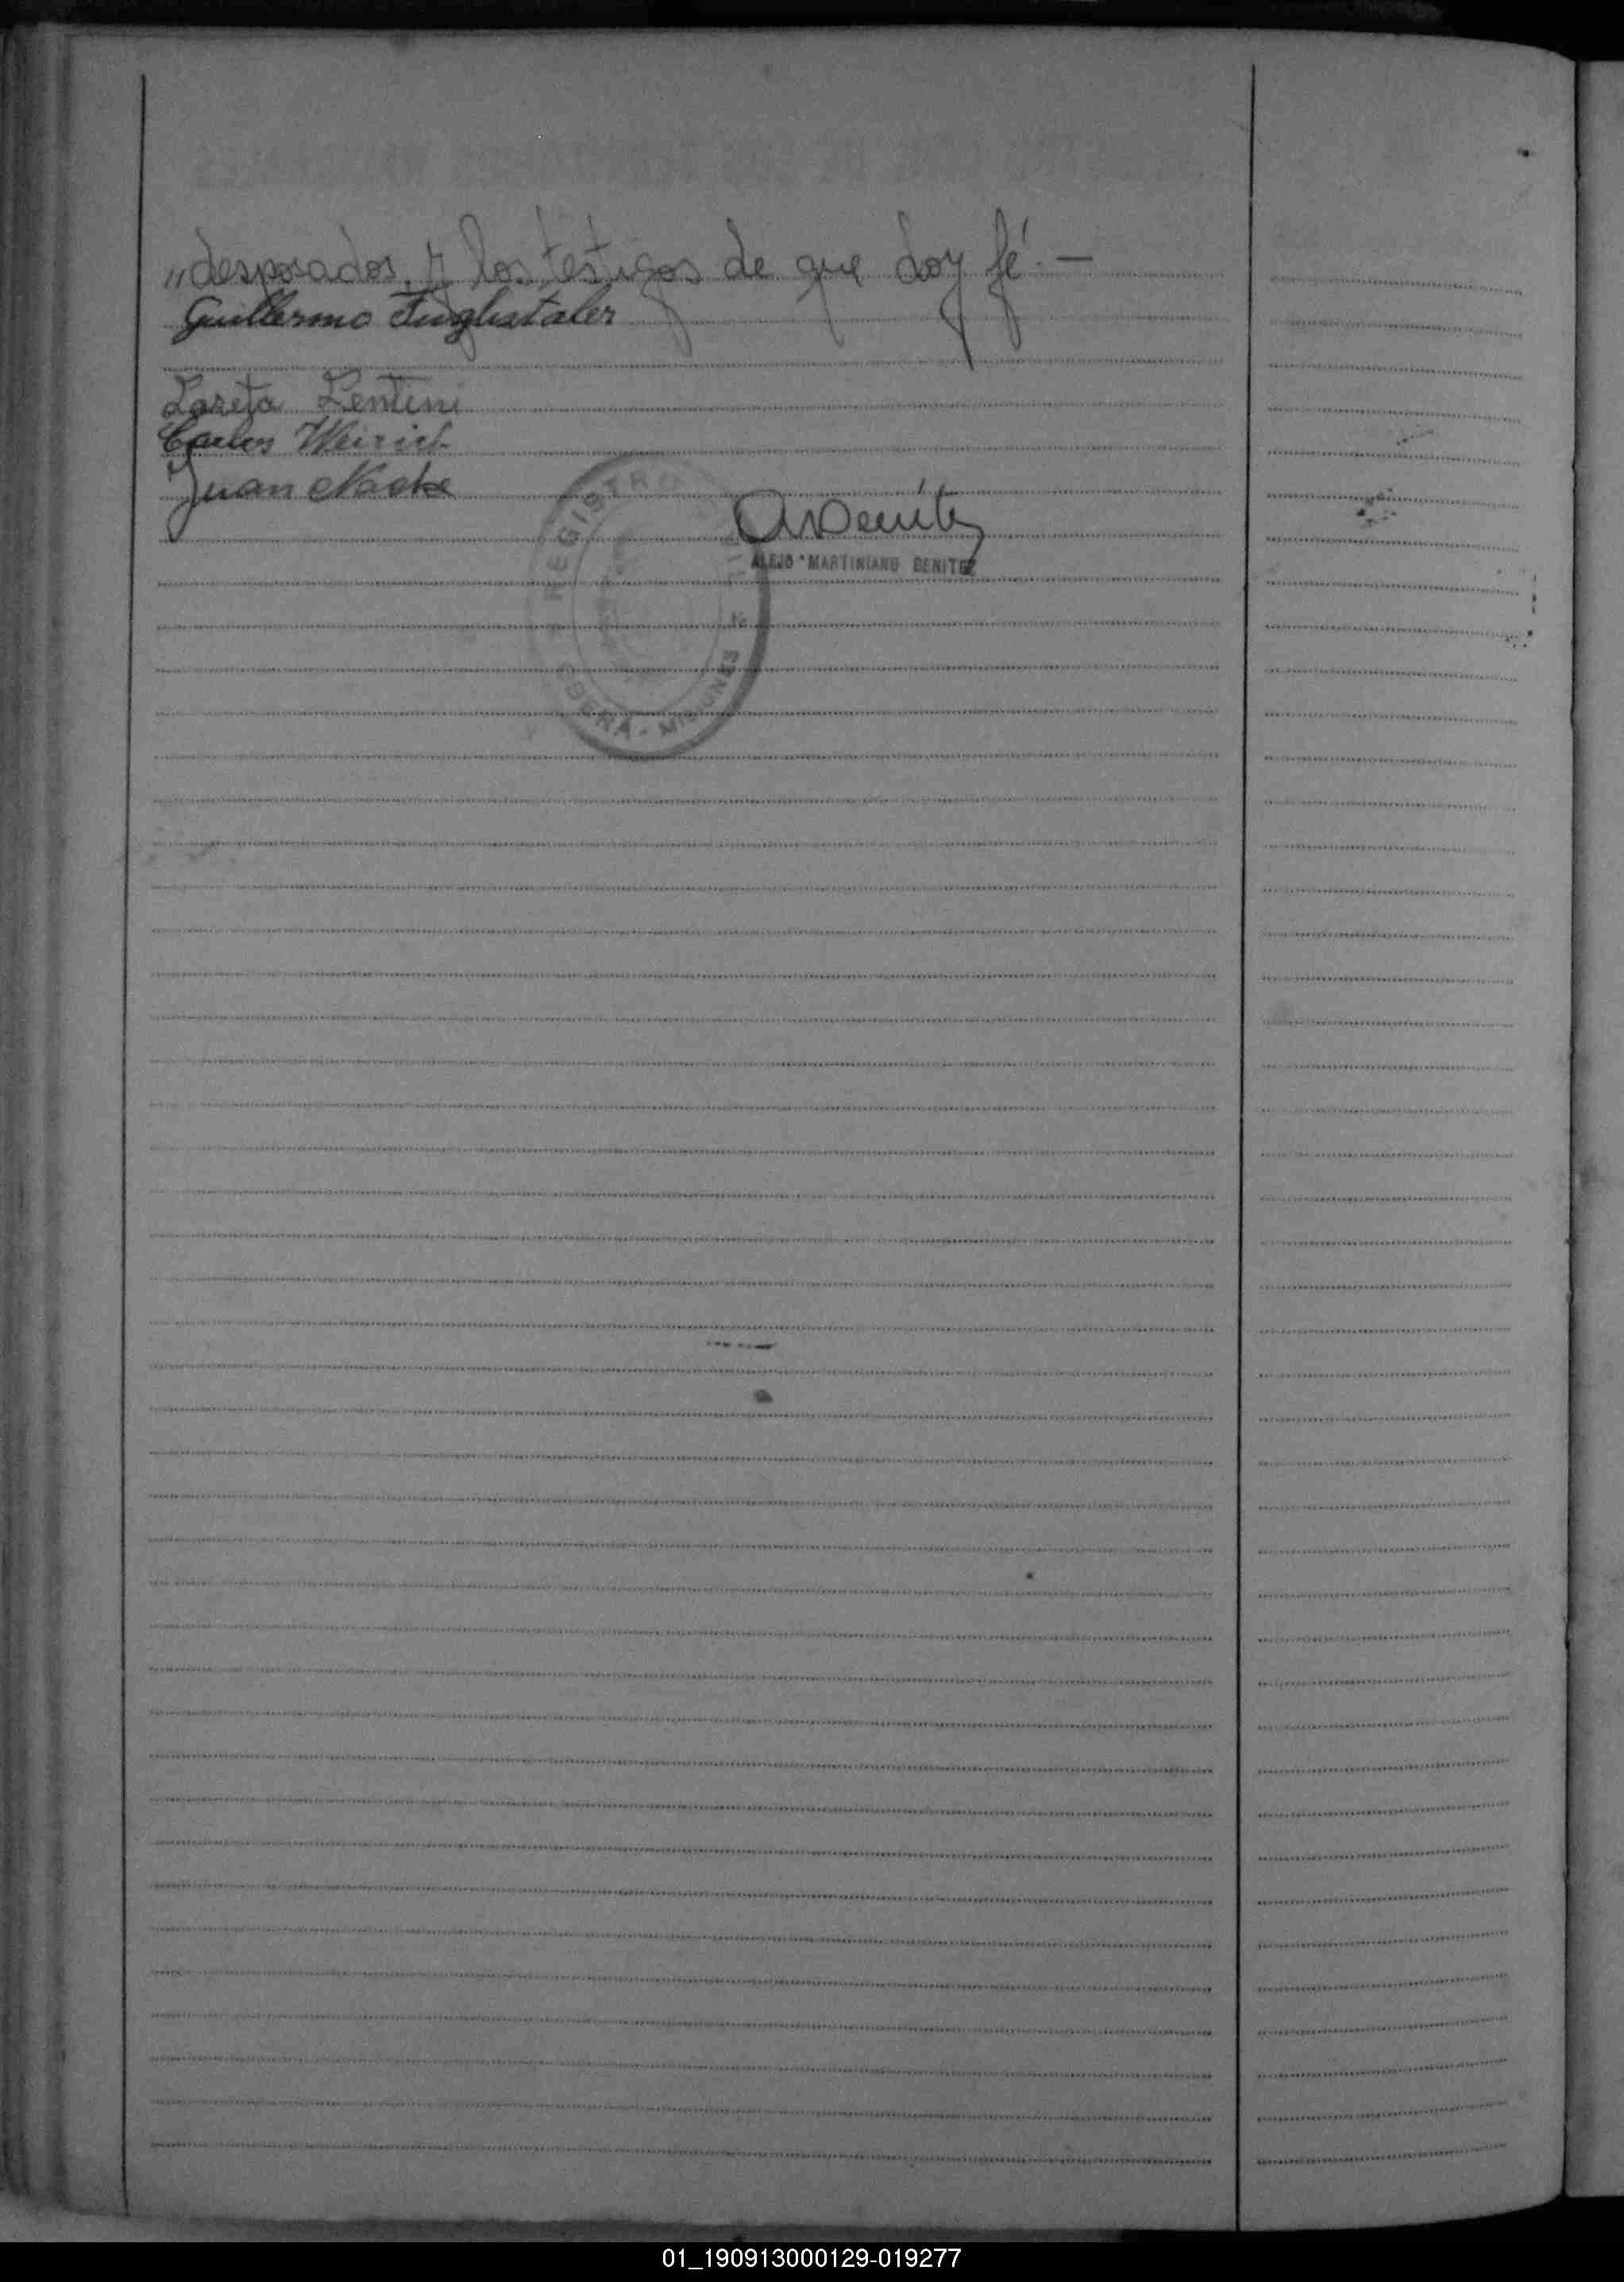 „desposados, y los testigos de que doy fé. —
Guillermo Tinglustaler
Loreta Lentini
Carlos Weirich
Juan Nacke
REGISTRO
ALEJO MARTINIANO BENITEZ
OBERA - MISIONES
01_190913000129-019277